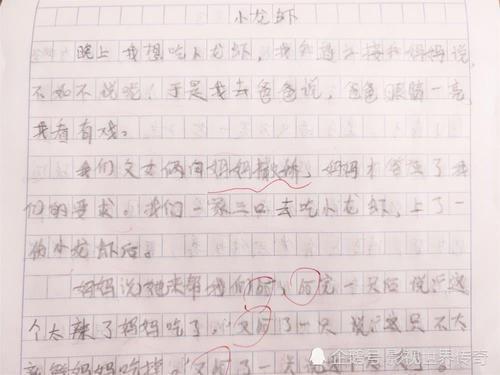 小龙虾
晚上我想吃小龙虾,我和妈妈说,
不如不说呢!于是我去爸爸说,爸爸眼睛一亮,
我看有戏。
我们父女俩向妈妈撒娇,妈妈才答应了我
们的要求。我们一家三口去吃小龙虾,上了一
小龙虾后。
妈妈说她来帮我们剥,剥完一只后说这
个太辣了妈妈吃了,又剥了一只说这只不太
妈妈吃掉。又剥了一只说
企鹅号 影视世界传奇